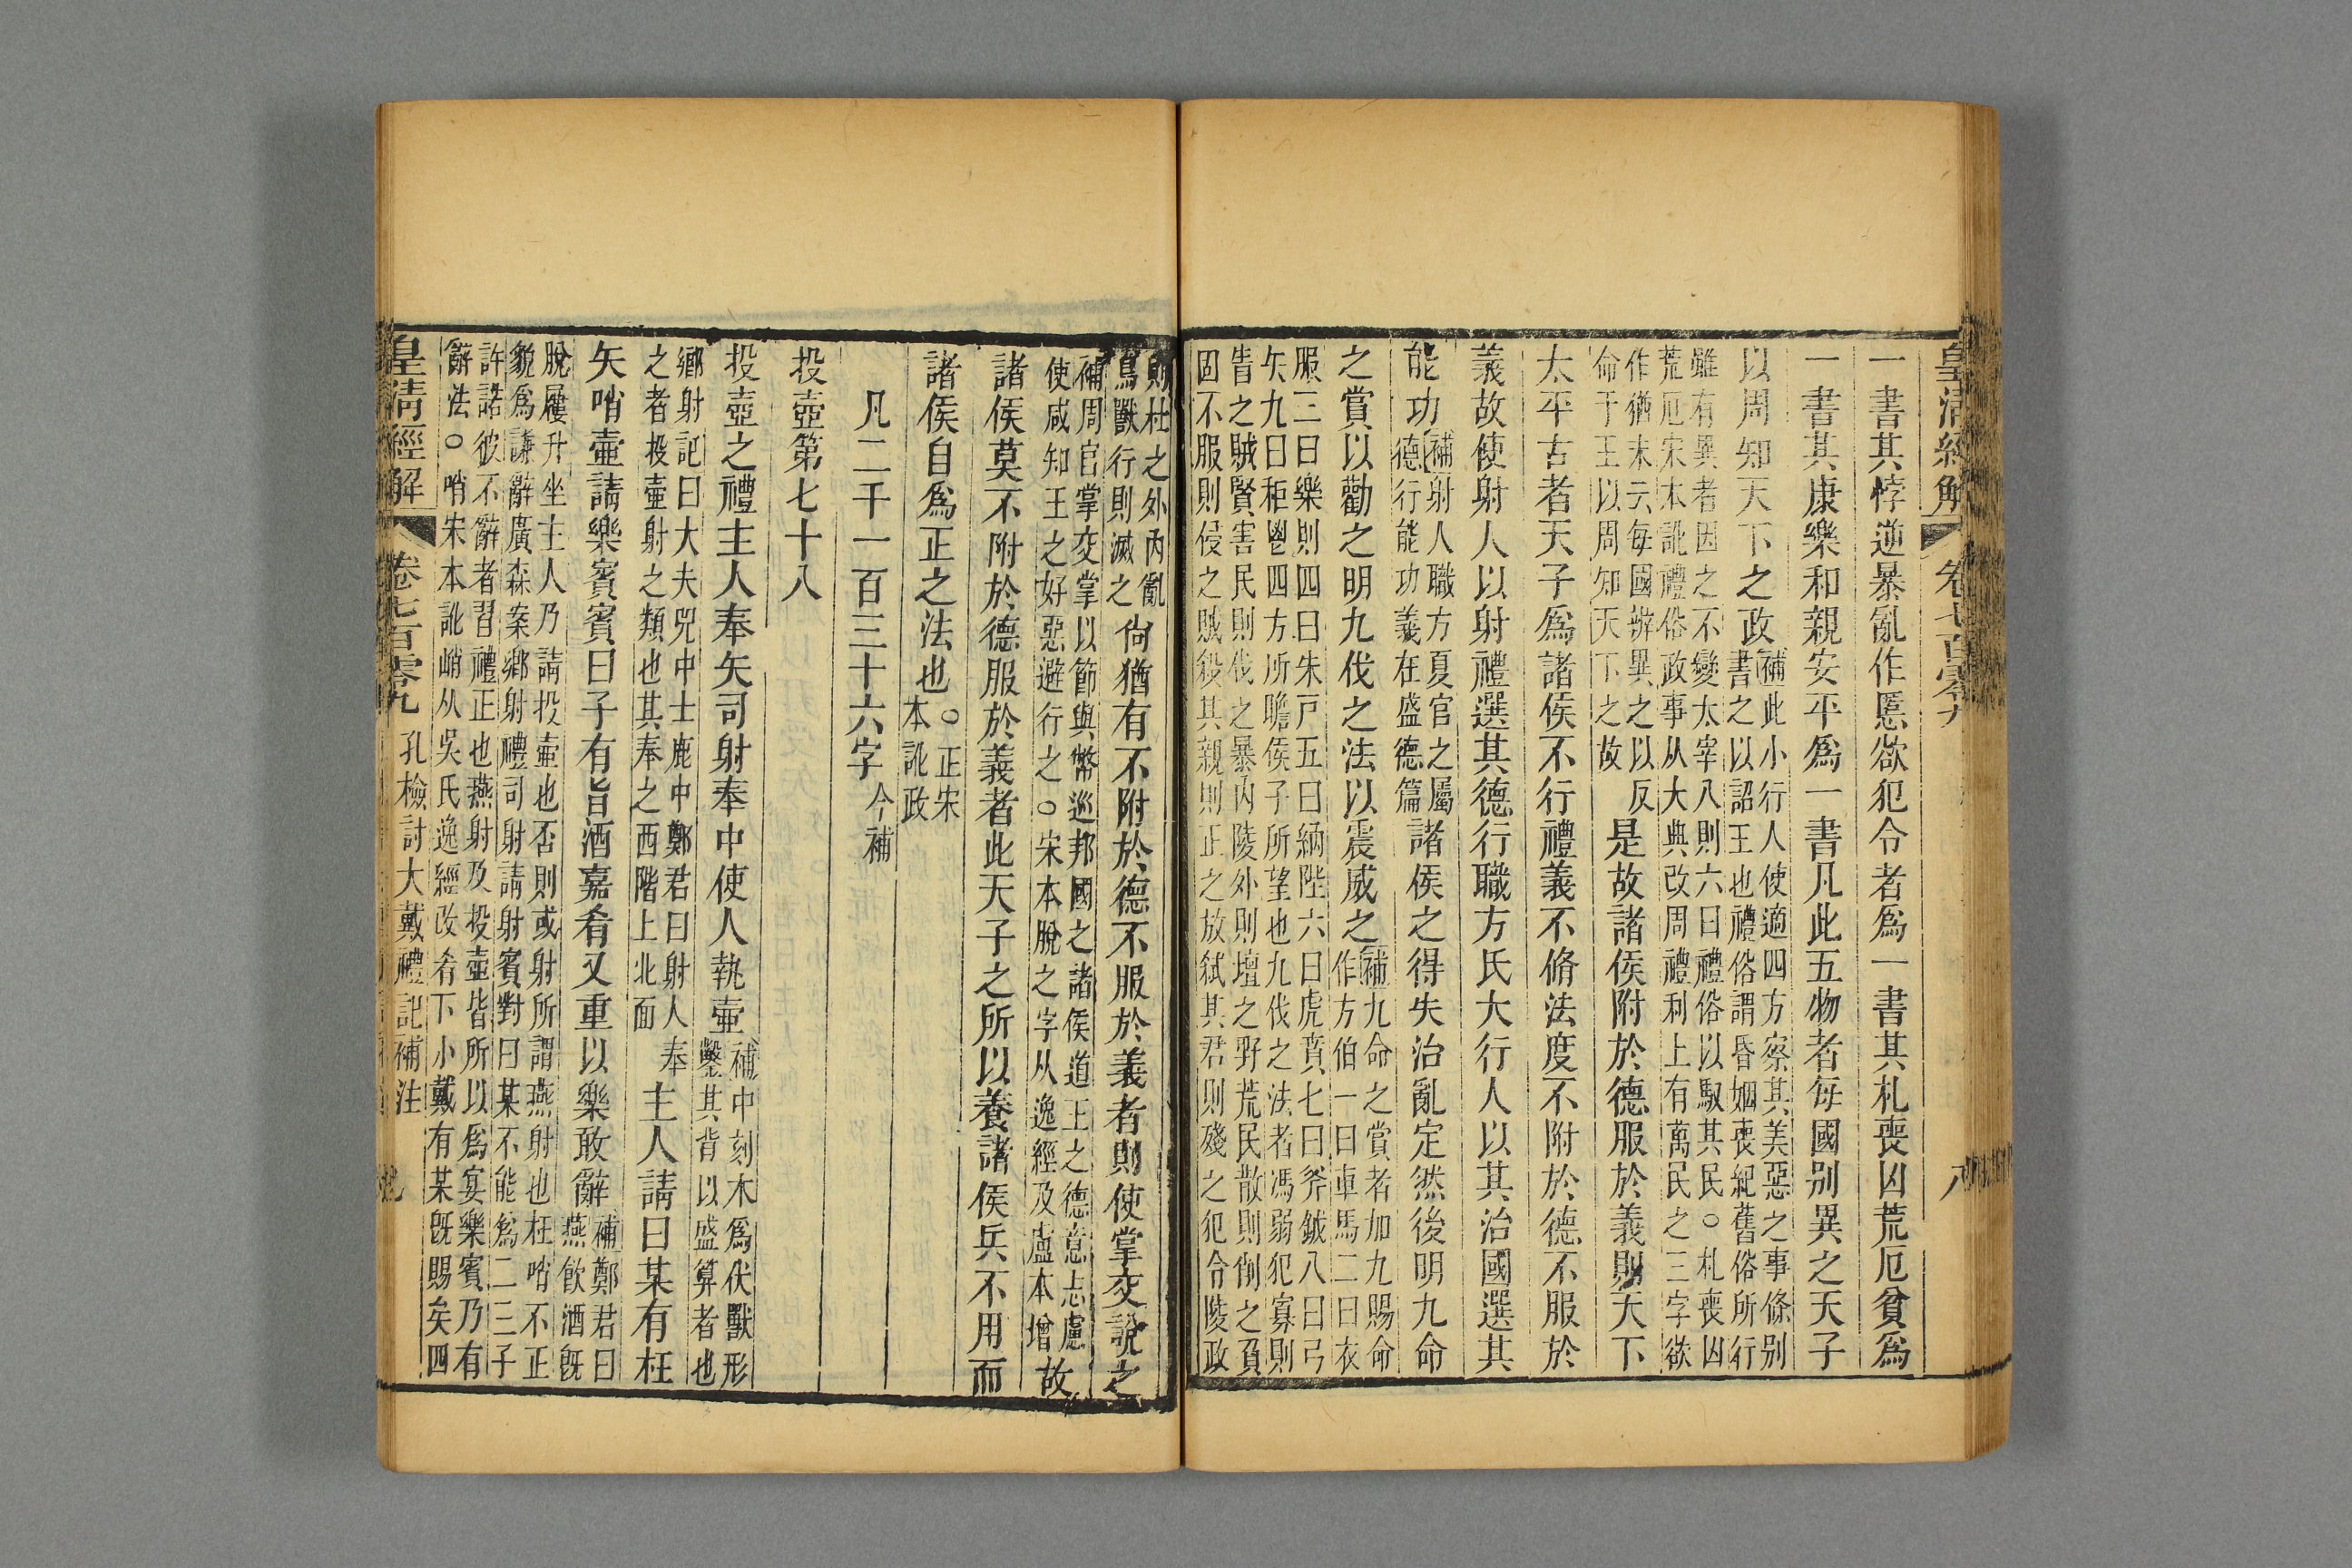 皇清經解 卷七百零九 八
一書其悖逆暴亂作慝欲犯令者爲一書其札喪凶荒厄貧爲
一書其康樂和親安平爲一書凡此五物者每國别異之天子
以周知天下之政
補此小行人使適四方察其美惡之事條别
書之以詔王也禮俗謂昏姻喪紀舊俗所行
雖有異者因之不變太宰八則六曰禮俗以馭其民○札喪凶
荒厄宋本訛禮俗政事从大典改周禮利上有萬民之三字欲
作猶末云每國辨異之以反
命于王以周知天下之故
是故諸侯附於德服於義則天下
太平古者天子爲諸侯不行禮義不脩法度不附於德不服於
義故使射人以射禮選其德行職方氏大行人以其治國選其
能功
補射人職方夏官之屬
德行能功義在盛德篇
諸侯之得失治亂定然後明九命
之賞以勸之明九伐之法以震威之
補九命之賞者加九賜命
作方伯一曰車馬二曰衣
服三曰樂則四曰朱戸五曰納陛六曰虎賁七曰斧鉞八曰弓
矢九曰秬鬯四方所瞻侯子所望也九伐之法者馮弱犯寡則
眚之賊賢害民則伐之暴內陵外則壇之野荒民散則削之負
固不服則侵之賊殺其親則正之放弑其君則殘之犯令陵政
則杜之外內亂
鳥獸行則滅之
尙猶有不附於德不服於義者則使掌交說之
補周官掌交掌以節與幣巡邦國之諸侯道王之德意志慮
使咸知王之好惡避行之○宋本脫之字从逸經及盧本增
故
諸侯莫不附於德服於義者此天子之所以養諸侯兵不用而
諸侯自爲正之法也
○正宋
本訛政
凡二千一百三十六字 今補
投壺第七十八
投壺之禮主人奉矢司射奉中使人執壺
補中刻木爲伏獸形
鑿其背以盛算者也
鄉射記曰大夫兕中士鹿中鄭君曰射人奉
之者投壺射之類也其奉之西階上北面
主人請曰某有枉
矢哨壺請樂賓賓曰子有旨酒嘉肴又重以樂敢辭
補鄭君曰
燕飲酒旣
脫屨升坐主人乃請投壺也否則或射所謂燕射也枉哨不正
貌爲謙辭廣森案鄉射禮司射請射賓對曰某不能爲二三子
許諾彼不辭者習禮正也燕射及投壺皆所以爲宴樂賓乃有
辭法○哨宋本訛峭从吳氏逸經改肴下小戴有某旣賜矣四
皇清經解 卷七百零九 孔檢討大戴禮記補注